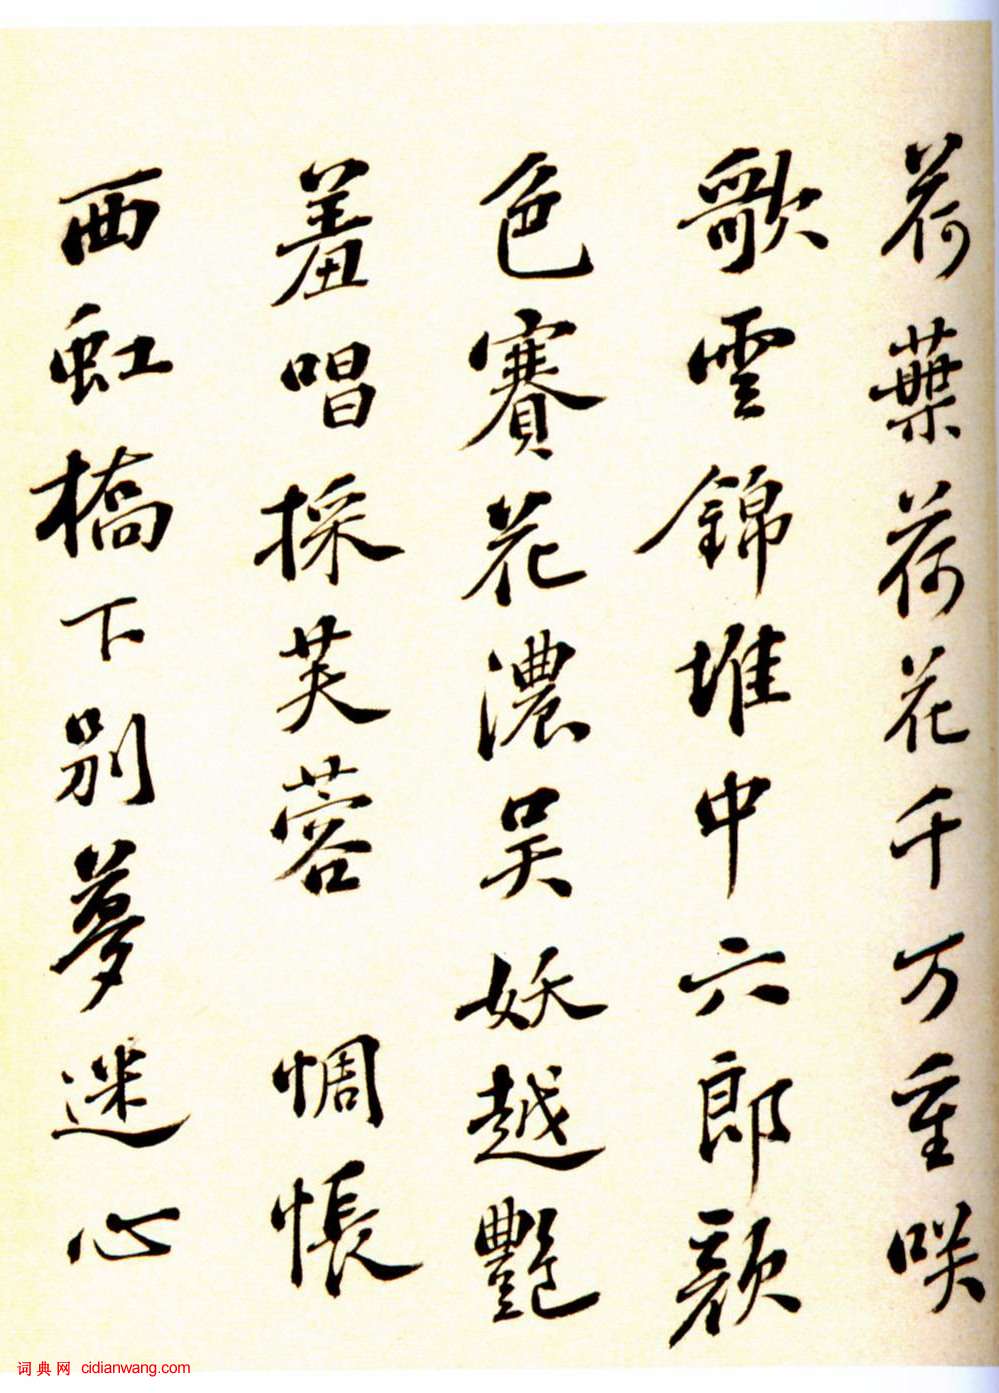 荷葉荷花千万重咲
歌雲錦堆中六郎顔
色賽花濃吴妖越艷
羞唱採芙蓉 惆悵
西虹橋下別夢迷心
词典网 cidianwang.com